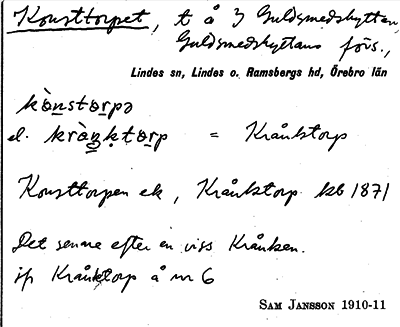 Konsttorpet, t å 3 Guldsmedshyttan,
Guldsmedshyttans förs.,
Lindes sn, Lindes o. Ramsbergs hd, Örebro län
kò̱nsto̱rpə
el. krå̀ŋkto̱rp = Krånktorp
Konsttorpen ek, Krånktorp kb 1871
Det senare efter en viss Krånken.
jfr Krånktorp å nr 6
SAM JANSSON 1910-11